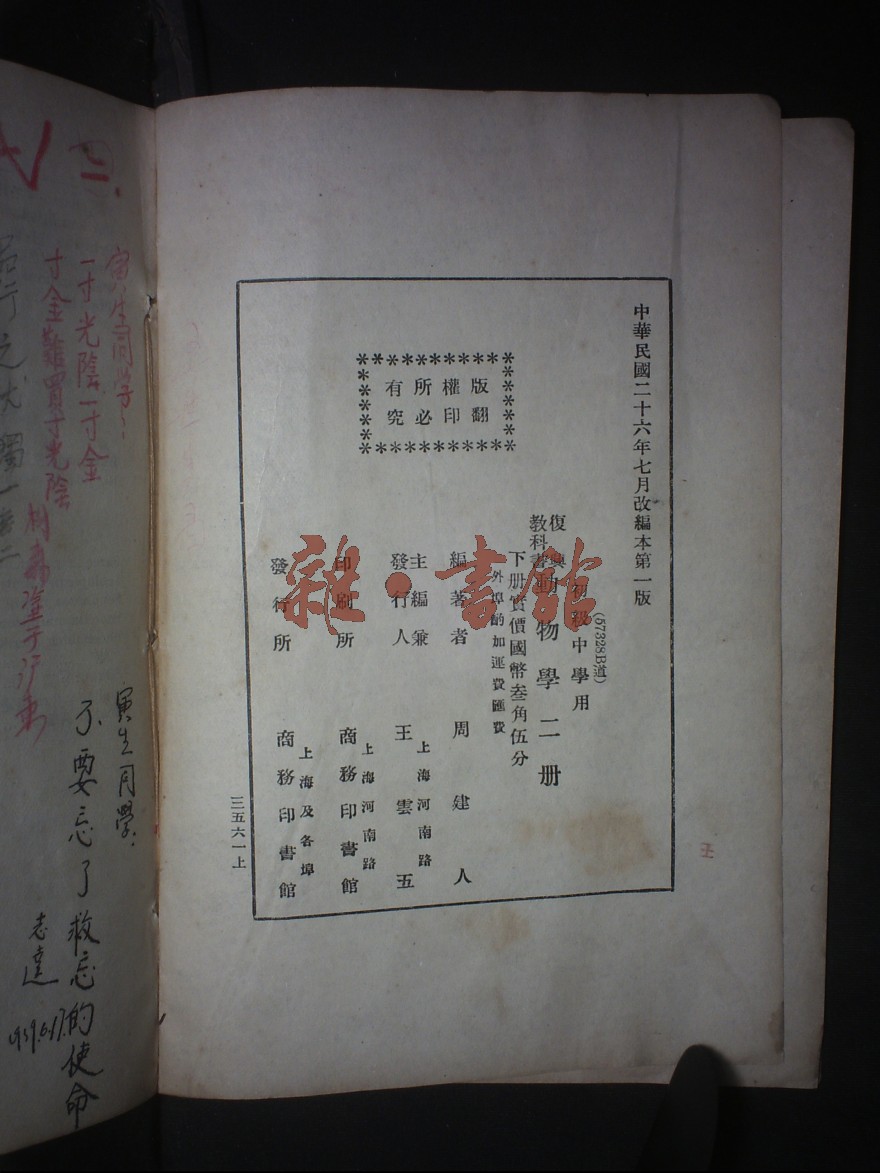 中華民國二十六年七月改編本第一版
版權所有
翻印必究
(57328B道)
初級中學用
復興教科書動物學二册
下册實價國幣叁角伍分
外埠酌加運費匯費
編著者 周建人
主編兼發行人 王雲五
上海河南路
印刷所 商務印書館
上海河南路
發行所 商務印書館
上海及各埠
三五六一上
雜·書館
寅生同学:
一寸光陰一寸金
寸金難買寸光陰
寅生同學:
不要忘了救忘的使命
志達
1939.6.17.